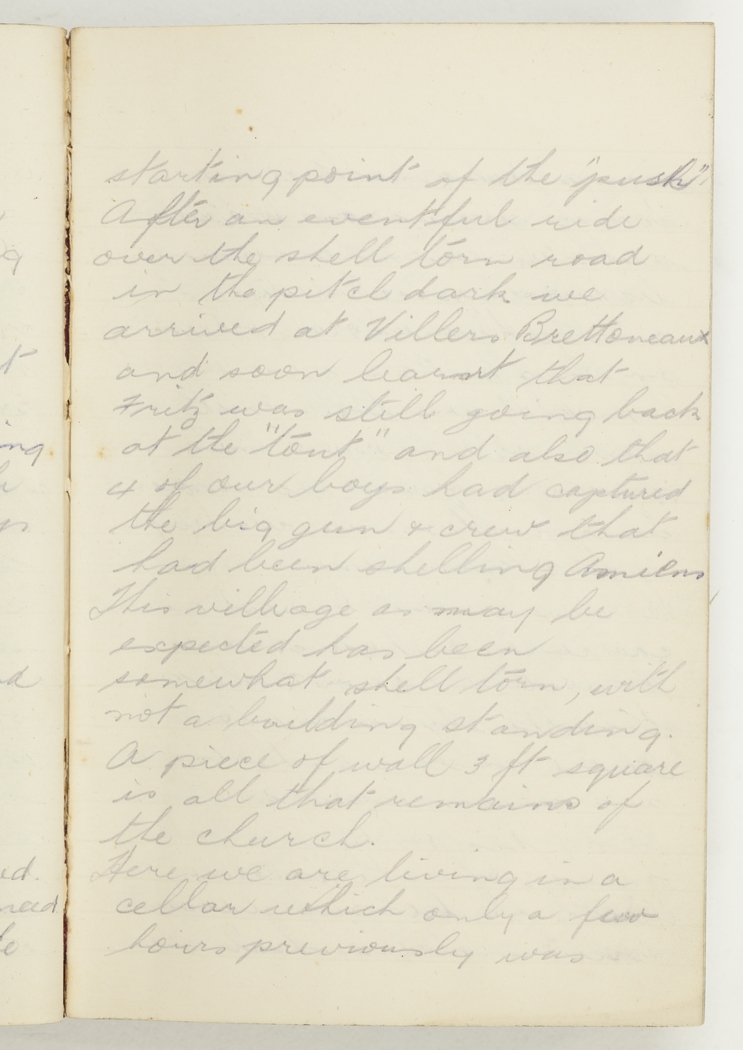 starting point of the "push".
After an eventful ride
over the shell torn road
in the pitch dark we
arrived at Villers Brettoneaux
and soon learnt that
Fritz was still going back
at the "tout" and also that
4 of our boys had captured
the big gun & crew that
had been shelling Amiens.
This village as may be
expected has been
somewhat shell torn, with
not a building standing.
A piece of wall 3 ft square
is all that remains of
the church.
Here we are living in a
cellar which only a few
hours previously was